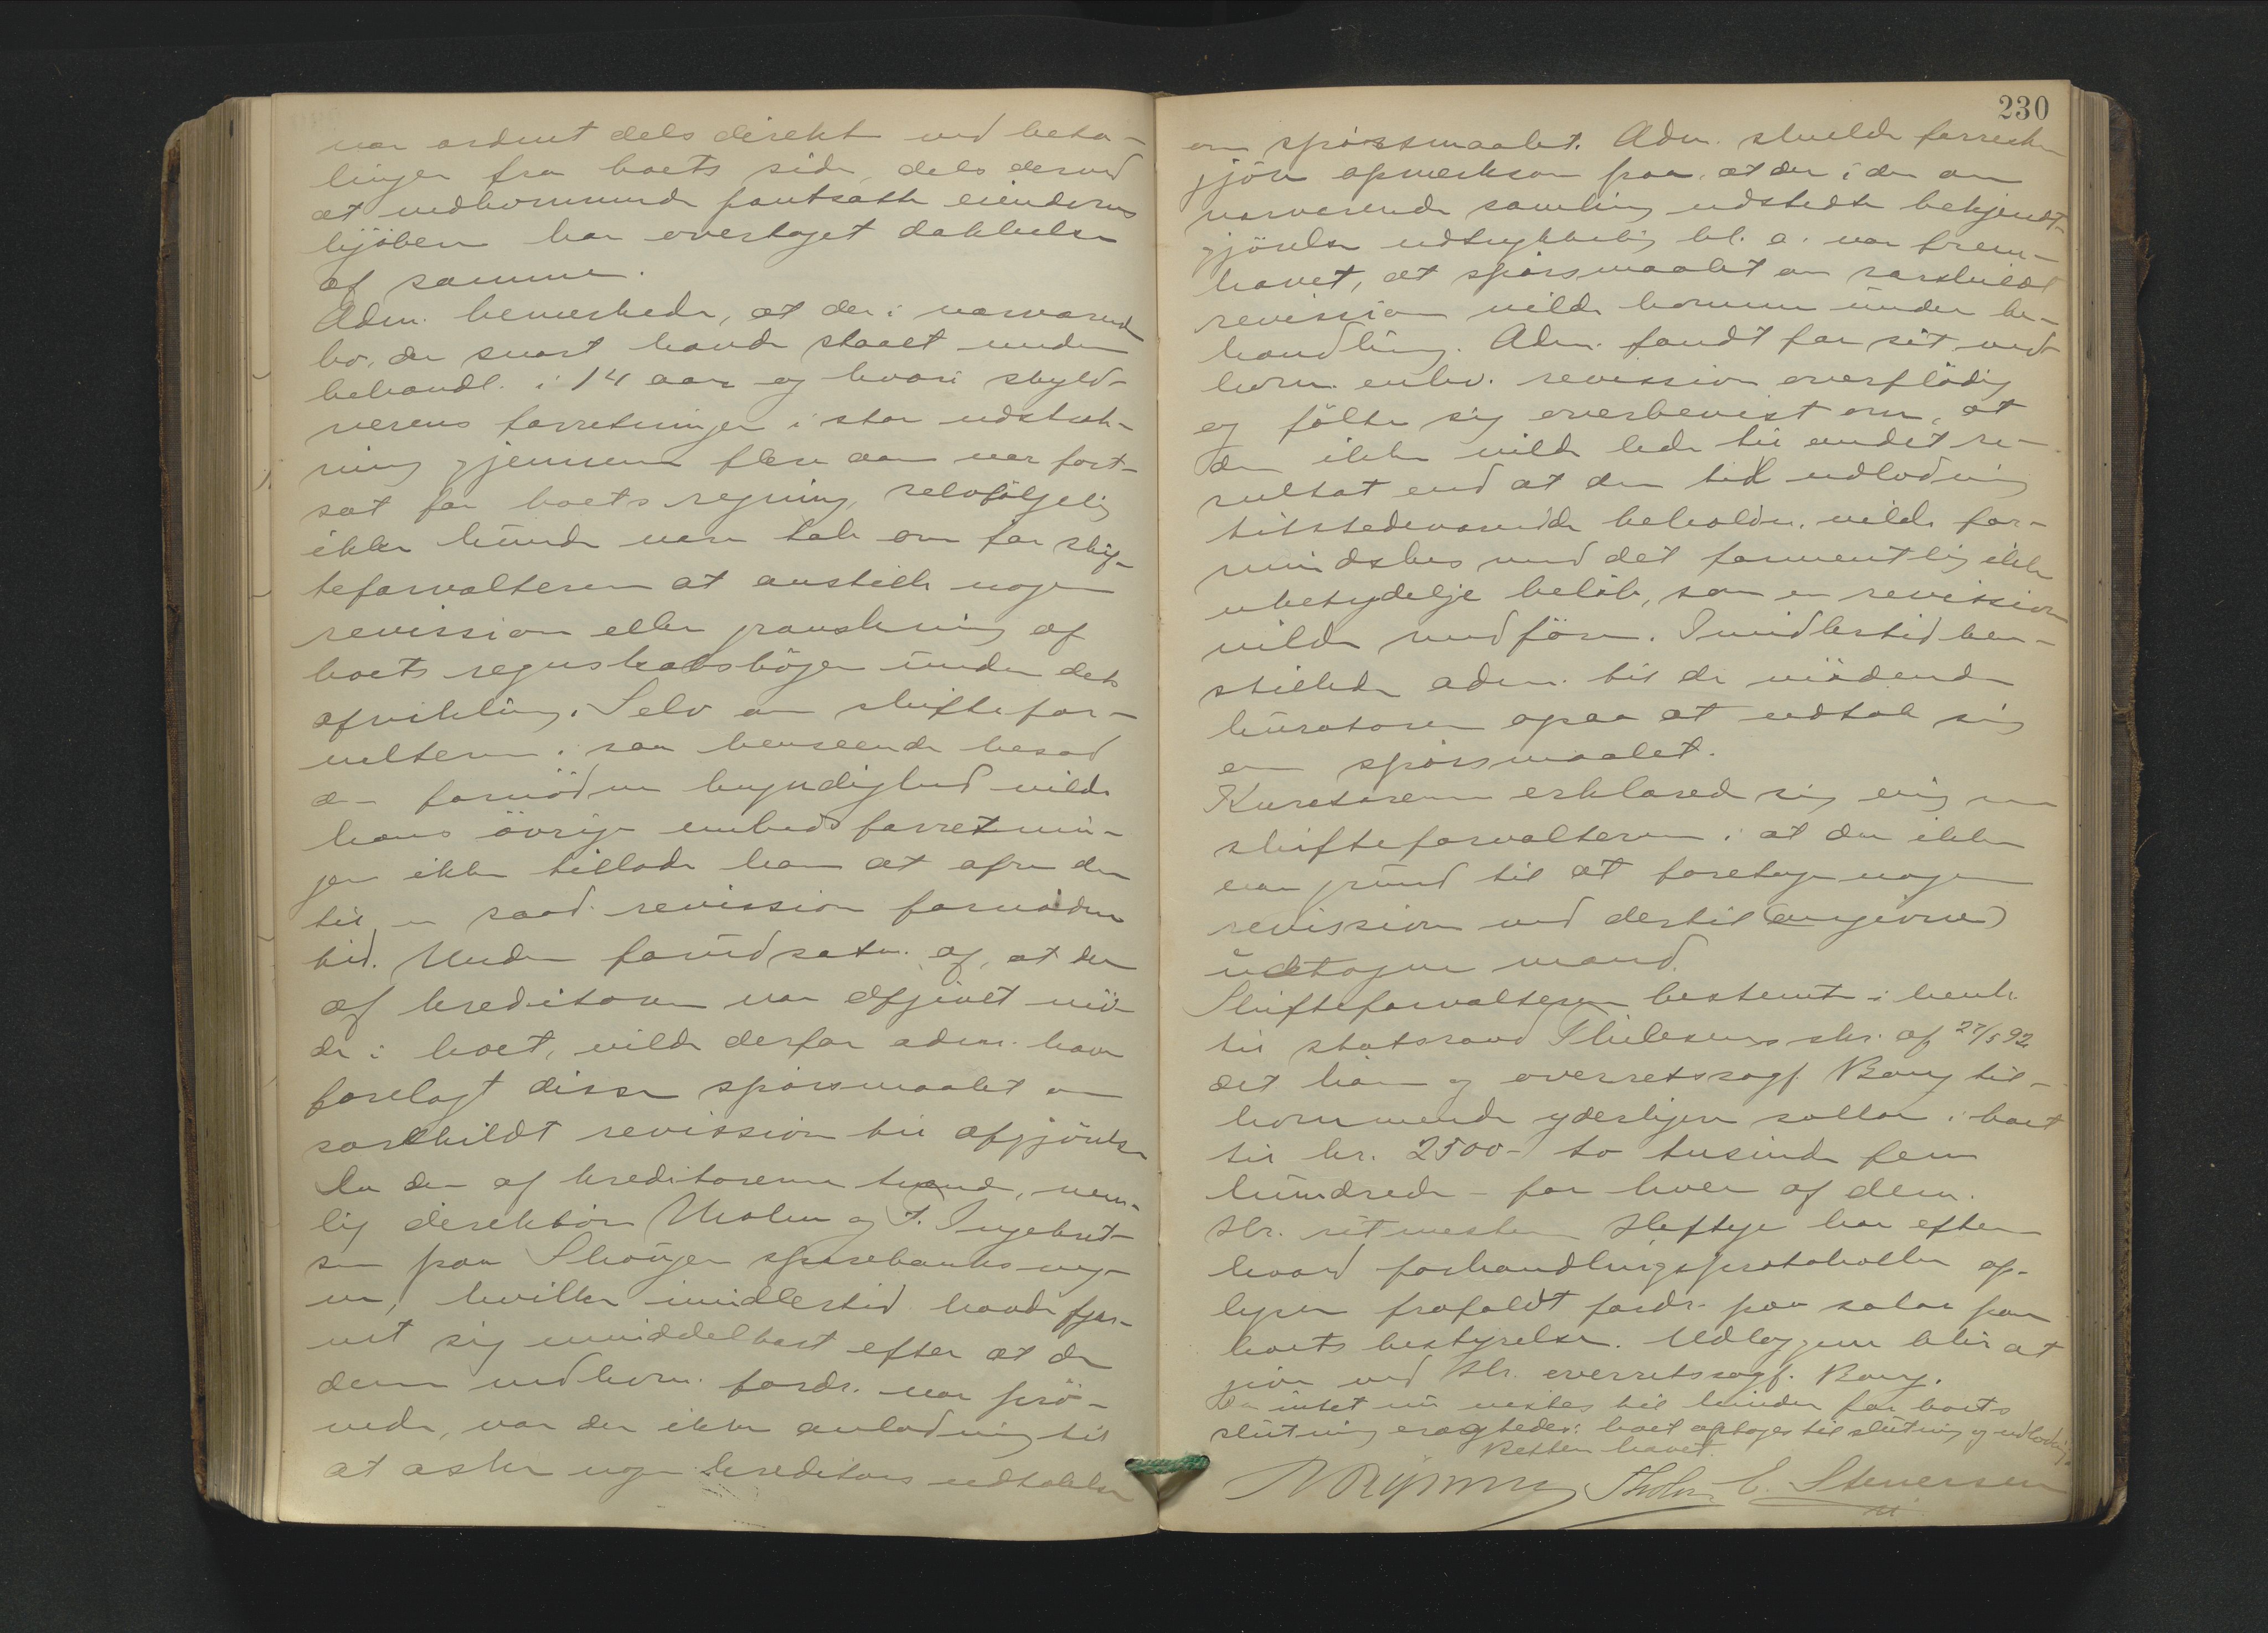 var ordnet dels direkte ved beta-
linger fra boets side, dels derved
at vedkommende pantsatte eiendoms
kjöber har overtaget dækkelse
af samme.
Adm. bemerkede, at der i nærværende
bo, der snart havde staaet under
behandl. i 14 aar og hvori skyld-
nerens forretninger i stor udstræk-
ning gjennem flere aar var fort-
sat for boets regning, selvfölgelig
ikke kunde være tale om for skif-
teforvalteren at anstille nogen
revission eller granskning af
boets regnskabsböger under dets
afvikling. Selv om skiftefor-
valteren i saa henseende besad
den fornödne kyndighed vilde
hans övrige embedsforretnin-
ger ikke tillade ham at ofre den
til en saad. revission fornödne
tid. Under forudsætn. af, at der
af kreditorer var afgivet mö-
de i boet, vilde derfor adm. have
forelagt disse spörsmaalet om
særskildt revission til afgjörelse
Da der af kreditorerne tvende, nem-
lig direktör Mohn og T. Ingebret-
sen paa Skouger sparebanks veg-
ne, hvilke imidlertid havde fjer-
net sig umiddelbart efter at de
dem vedkom. fordr. var prö-
vede, var der ikke anledning til
at æske nogen kreditors udtalelse
230
om spörssmaalet. Adm. skulde forresten
gjöre opmerksom paa, at der i den om
nærværende samling udstedte bekjendt-
gjörelse udtrykkelig bl. a. var frem-
hævet, at spörsmaalet om særskildt
revission vilde komme under be-
handling. Adm. fandt for sit ved-
kom. enhv. revission overflödig
og fölte sig overbevist om, at
den ikke vilde lede til andet re-
sultat end at den til udlodning
tilstedeværende beholdn. vilde for-
mindskes med det formentlig ikke
ubetydelige belöb, som en revission
vilde medföre. Imidlertid hen-
stillede adm. til de mödende
kuratorer ogsaa at udtale sig
om spörsmaalet.
Kuratorerne erklærede sig enig med
skifteforvalteren i at der ikke
var grund til at foretage nogen
revission ved dertil (angivne)
udtagne mænd.
Skifteforvalteren bestemte i henh.
til statsraad Thilesens skr. af 27/5 92
det ham og overretssagf. Bang til-
kommende yderligere sallær i boet
til kr. 2500 - to tusinde fem
hundrede - for hver af dem.
Hr. ritmester Heftye har efter
hvad forhandlingsprotokollen op-
lyser frafaldt fordr. paa salær for
boets bestyrelse. Udlæggene blir at
give ved Hr. overretssagf. Bang.
Da intet nu vistes til hinder for boets
slutning eragtedes: boet optages til slutning og udlodning.
Retten hævet.
E. Stenersen